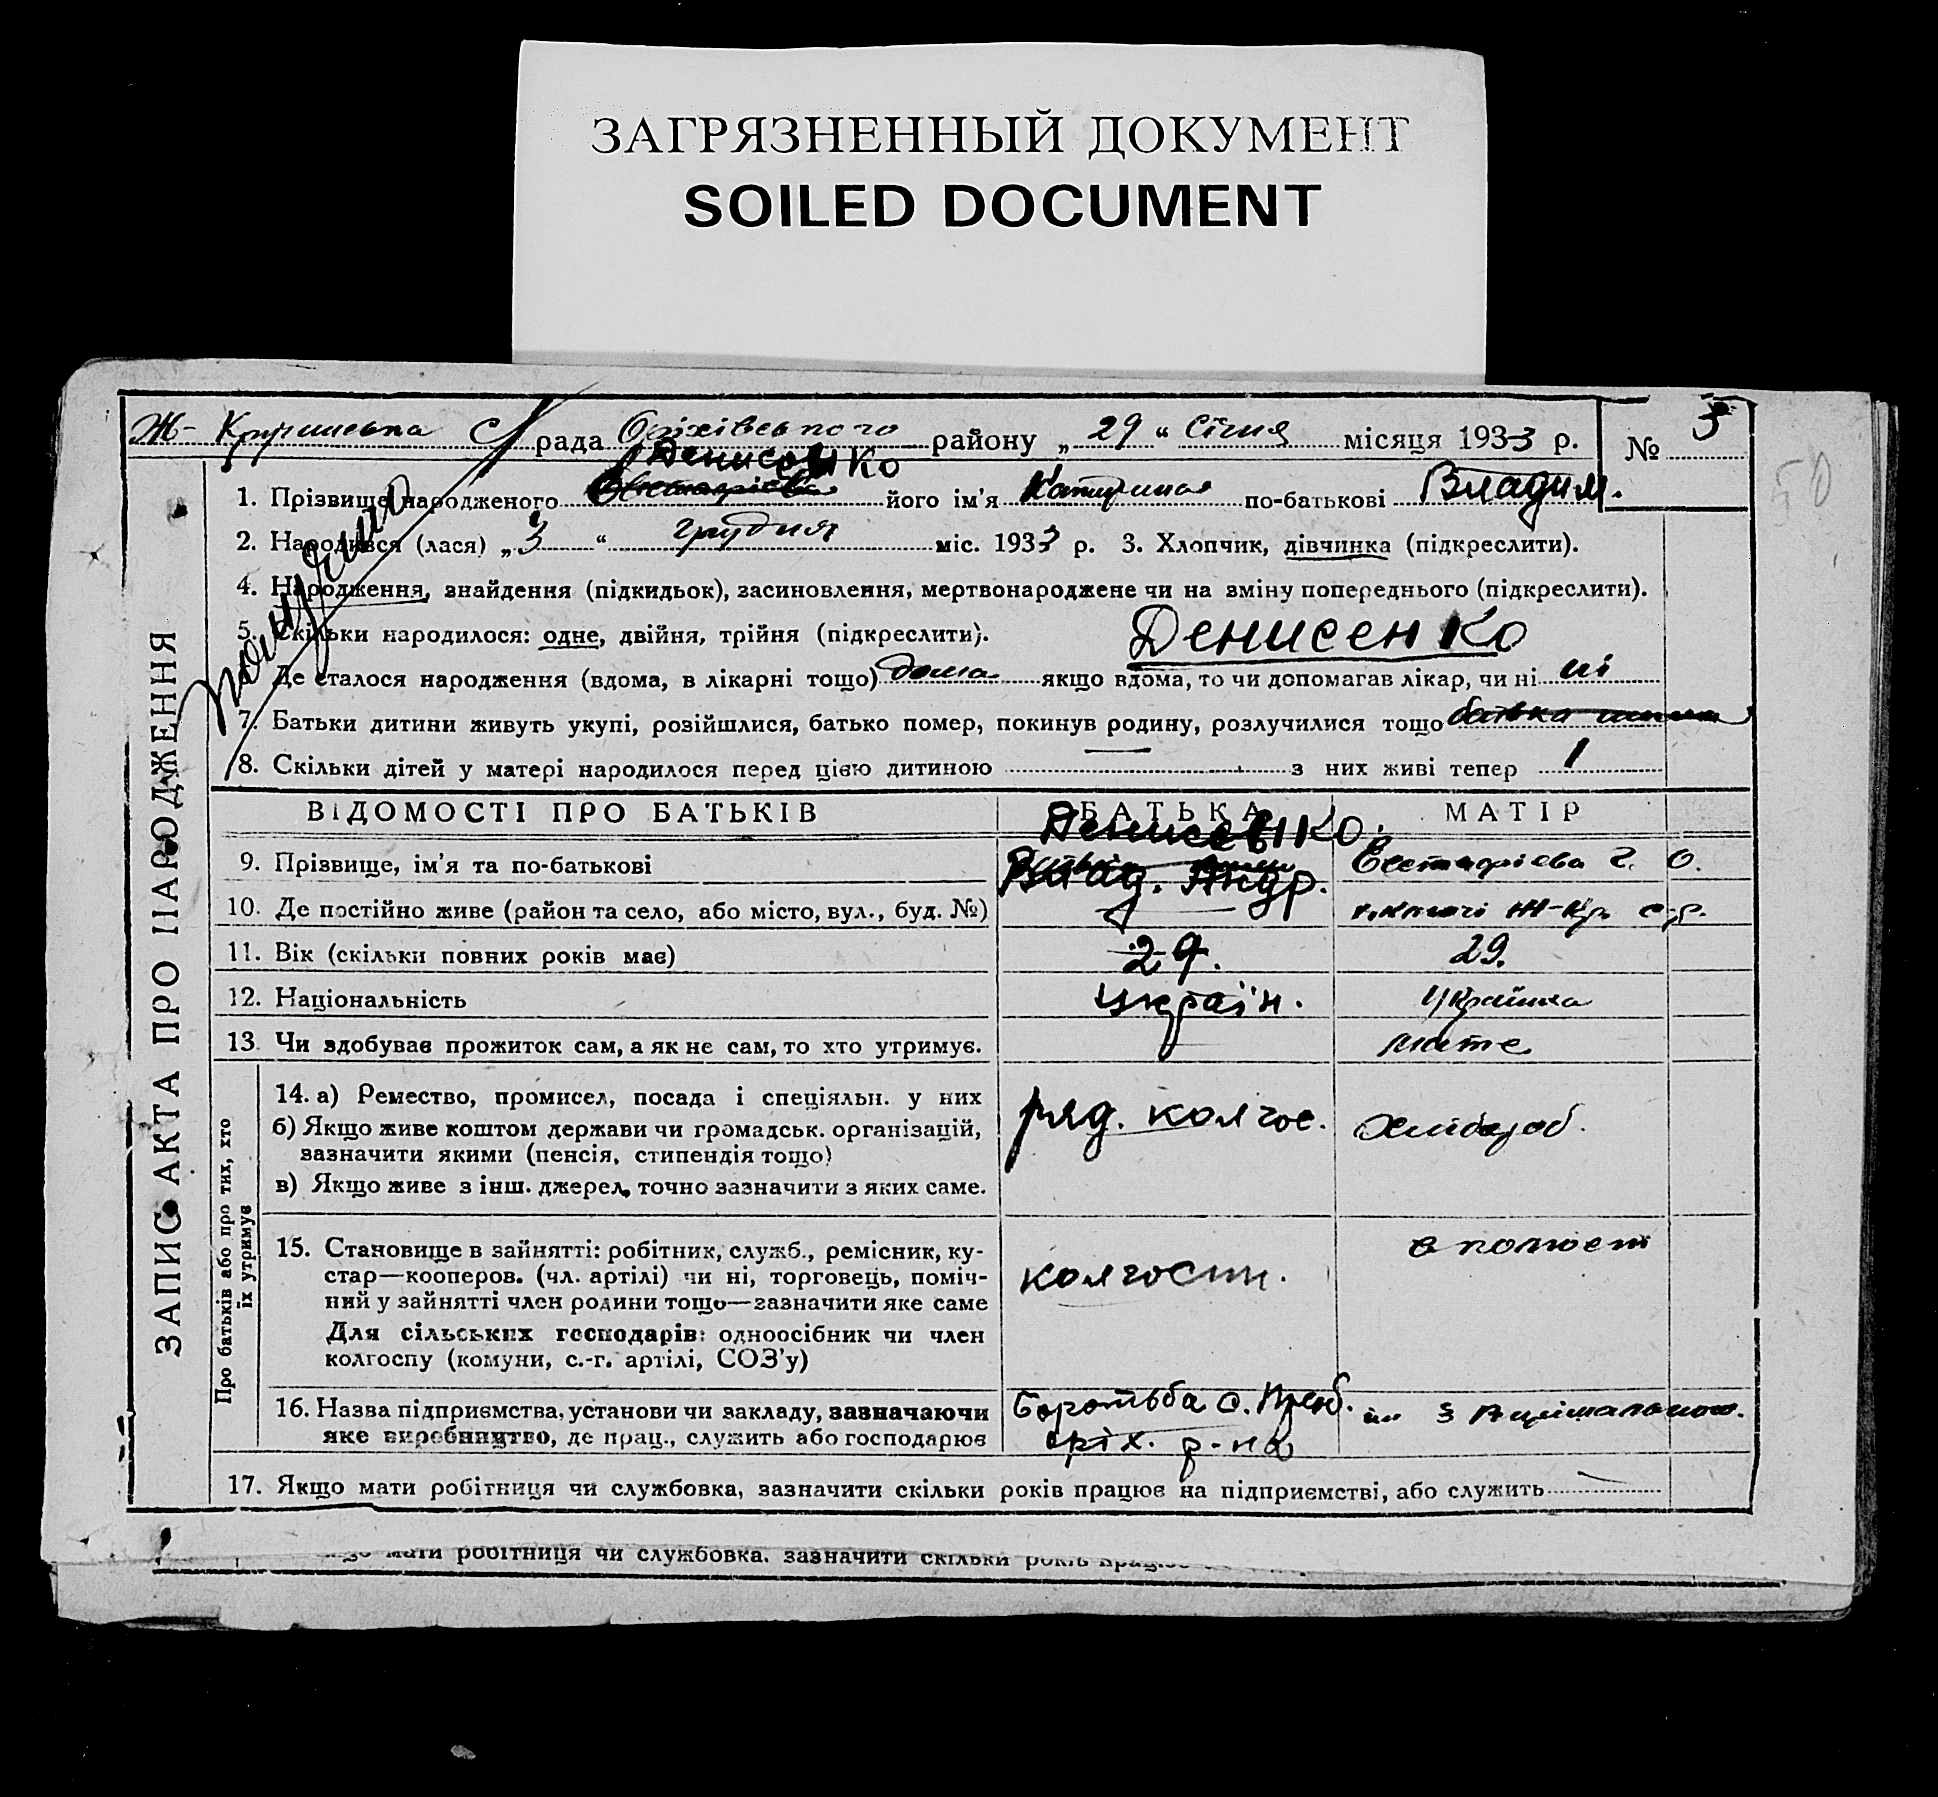 ЗАГРЯЗНЕННЫЙ ДОКУМЕНТ
SOILED DOCUMENT
рада Оріхівського району „ 29 “ Січня місяця 1933 р. № 3
Денисенко
1. Прізвище народженого його ім'я Катерина по-батькові Владим.
50
2. Народився (лася) „ 3 “ грудня міс. 1933 р. 3. Хлопчик, дівчинка (підкреслити).
4. Народження, знайдення (підкидьок), засиновлення, мертвонароджене чи на зміну попереднього (підкреслити).
5. Скільки народилося: одне, двійня, трійня (підкреслити).
Денисенко
Де сталося народження (вдома, в лікарні тощо) дома якщо вдома, то чи допомагав лікар, чи ні ні
7. Батьки дитини живуть укупі, розійшлися, батько помер, покинув родину, розлучилися тощо
8. Скільки дітей у матері народилося перед цією дитиною — з них живі тепер 1
ЗАПИС АКТА ПРО НАРОДЖЕННЯ
ВІДОМОСТІ ПРО БАТЬКІВ БАТЬКА МАТІР
Денисенко.
9. Прізвище, ім'я та по-батькові Влад. Андр.
10. Де постійно живе (район та село, або місто, вул., буд. №)
11. Вік (скільки повних років має) 29. 29.
12. Національність україн. Українка
13. Чи здобував прожиток сам, а як не сам, то хто утримує.
Про батьків або про тих, хто
їх утримує
14. а) Ремество, промисел, посада і спеціяльн. у них ряд. колгос. Хлібороб.
б) Якщо живе коштом держави чи громадськ. організацій,
зазначити якими (пенсія, стипендія тощо)
в) Якщо живе з інш. джерел, точно зазначити з яких саме.
15. Становище в зайнятті: робітник, служб., ремісник, ку-
стар—кооперов. (чл. артілі) чи ні, торговець, поміч- колгоспн.
ний у зайнятті член родини тощо—зазначити яке саме
Для сільських господарів: одноосібник чи член
колгоспу (комуни, с.-г. артілі, СОЗ'у)
16. Назва підприємства, установи чи закладу, зазначаючи Боротьба с.
яке виробництво, де прац., служить або господарює оріх. р-на
17. Якщо мати робітниця чи службовка, зазначити скільки років працює на підприємстві, або служить
мати робітниця чи службовка, зазначити скільки років